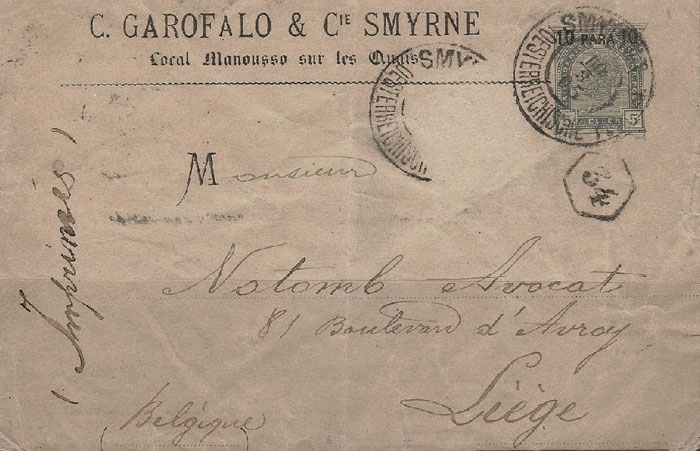 C. GAROFALO & CIE SMYRNE
Local Manousso sur les Quais
10 PARA 10
5 HELLER 5
OESTERREICHISCHE
OESTERREICHISCH
34
Imprimés
Monsieur
Notomb Avocat
81 Boulevard d'Avroy
Liège
Belgique